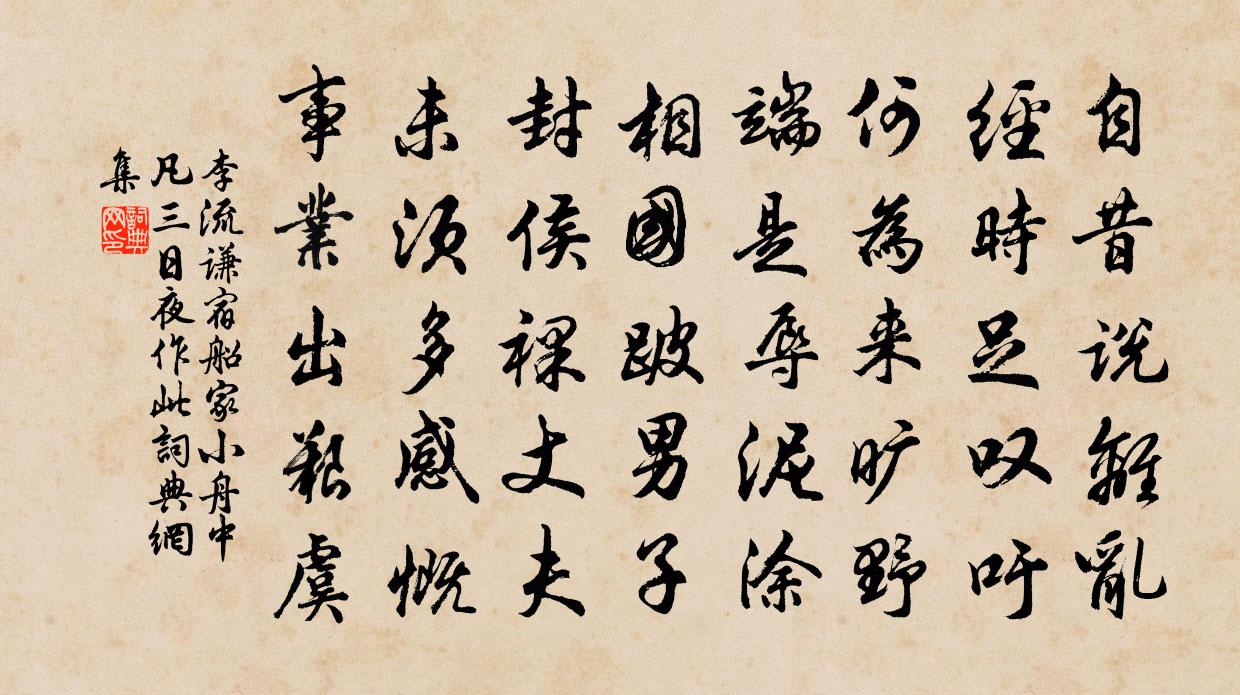 自昔説離亂
經時足叹吁
何為来旷野
端是辱泥涂
相國跛男子
封侯裸丈夫
未須多感慨
事業出艱虞
李流谦宿船家小舟中
凡三日夜作此詞典網
集
詞典网印